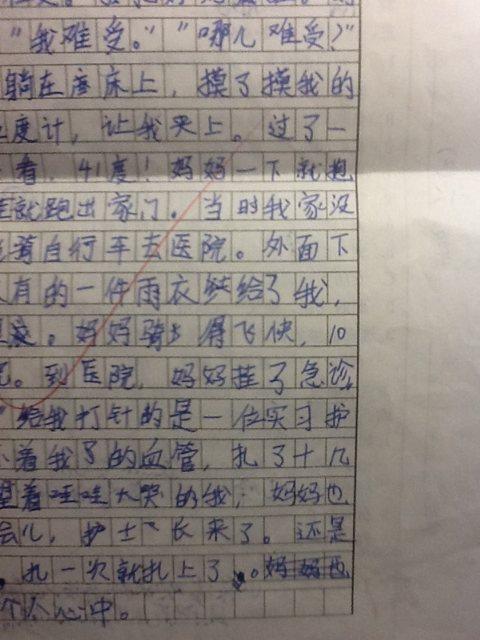 "我难受。""哪儿难受?"
躺在床上,摸了摸我的
度计,让我夹上。过了一
看,41度!妈妈一下就抱
就跑出家门。当时我家没
着自行车去医院。外面下
有的一件雨衣给了我,
。妈妈骑得飞快,10
。到医院,妈妈挂了急诊,
给我打针的是一位实习护
着我了的血管,扎了十几
望着哇哇大哭的我,妈妈也
会儿,护士长来了。还是
,扎一次就扎上了。妈妈也
个人心中。